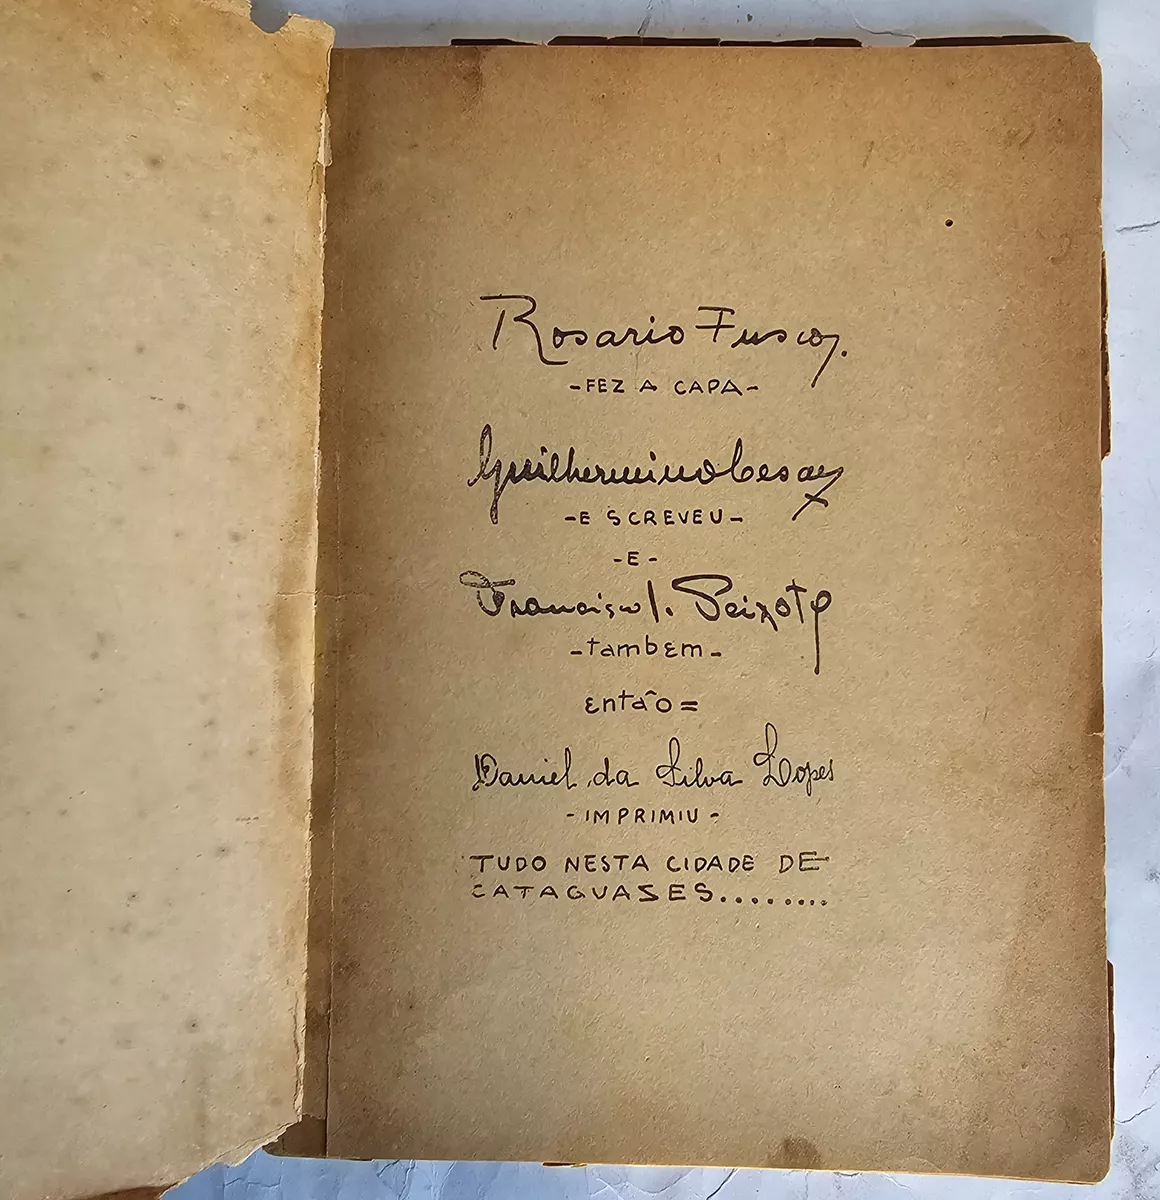 Rosario Fusco.
-FEZ A CAPA-
Guilhermino Cesar
-E SCREVEU-
-E-
Francisco I. Peixoto
-também-
então=
Daniel da Silva Lopes
-IMPRIMIU-
TUDO NESTA CIDADE DE
CATAGUAZES.........